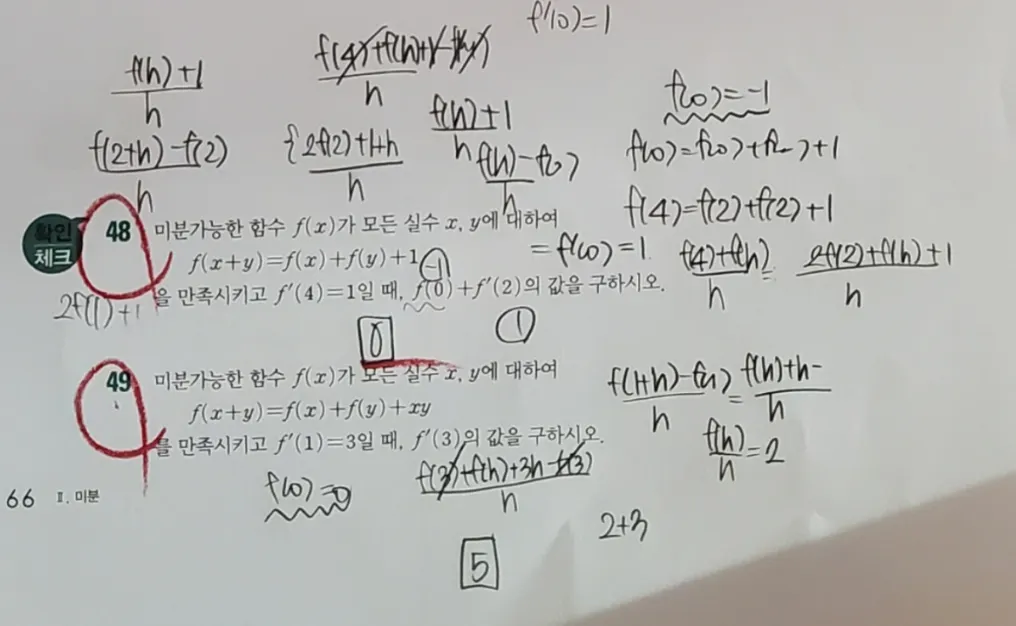 f'(0)=1
f(h)+1
h
f(4)+f(h)+1-f(4)
h
f(h)+1
h
f(0)=-1
f(2+h)-f(2)
h
{2f(2)+1+h
h
f(h)-f(0)
h
f(0)=f(0)+f(0)+1
f(4)=f(2)+f(2)+1
확인
체크
48 미분가능한 함수 f(x)가 모든 실수 x, y에 대하여
f(x+y)=f(x)+f(y)+1
-1
을 만족시키고 f'(4)=1일 때, f(0)+f'(2)의 값을 구하시오.
=f'(0)=1
f(4)+f(h)
h
=
2f(2)+f(h)+1
h
2f(1)+1
0
1
49 미분가능한 함수 f(x)가 모든 실수 x, y에 대하여
f(x+y)=f(x)+f(y)+xy
를 만족시키고 f'(1)=3일 때, f'(3)의 값을 구하시오.
f(1+h)-f(1)
h
=
f(h)+h-
h
f(h)
h
=2
f(0)=0
f(3)+f(h)+3h-f(3)
h
2+3
66 Ⅱ. 미분
5